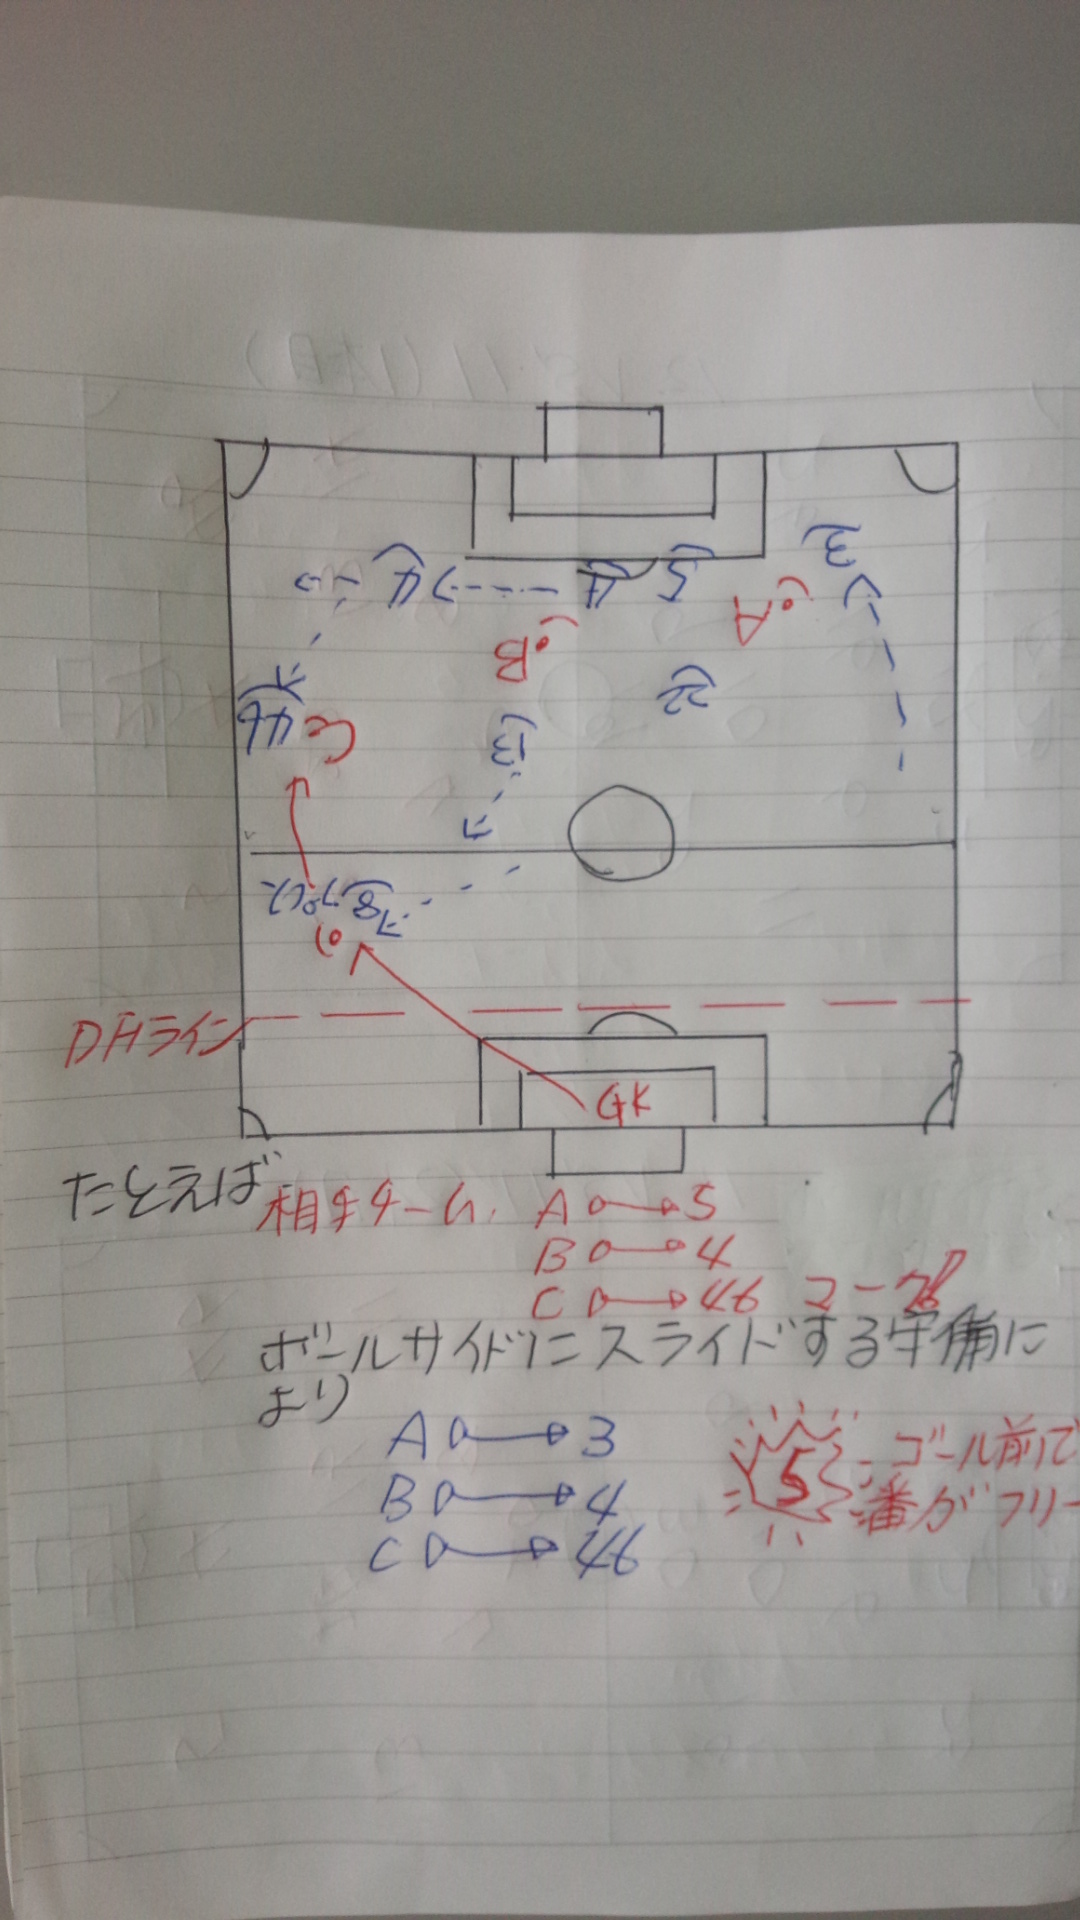 3
4 4 5
A
B
22
46 C
13
8
DHライン
GK
たとえば
相手チーム A 5
B 4
C 46
ボールサイドにスライドする守備に
より
A 3
B 4
C 46
5 ゴール前で
番がフリー